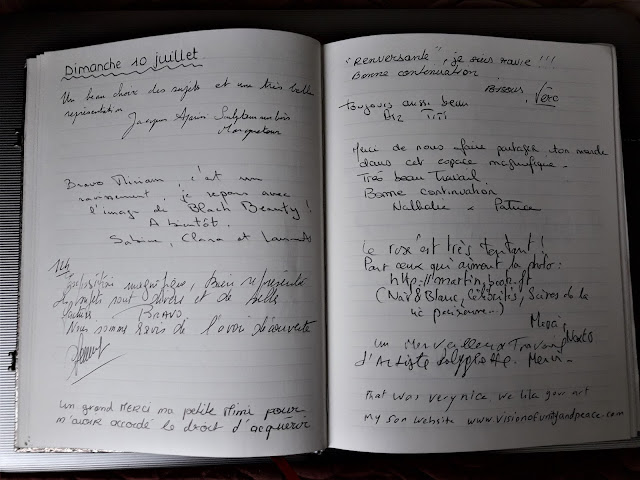 Dimanche 10 juillet.
Un beau choix des sujets et une très belle
représentation
Jacques Sculpteur sur bois
Marqueteur
Bravo Miriam, c'est un
ravissement, je repars avec
l'image de Black Beauty !
A bientôt.
Sabine, Clara et
14h
Exposition magnifique, bien représenté
sujets sont divers et de belle
BRAVO
Nous sommes ravis de l'avoir découverte
Un grand MERCI ma petite Mimi pour
m'avoir accordé le droit d'acquérir
"RENVERSANTE", je suis ravie !!!
Bonne continuation
Bisous, Véro
toujours aussi beau
Biz Titi
Merci de nous faire partager ton monde
dans cet espace magnifique.
Très beau travail
Bonne continuation
Nathalie & Patrice
Le rosé est très tentant !
Pour ceux qui aiment la photo :
http://martin.book.fr
(Noir & Blanc, Célébrités, Scènes de la
vie parisienne.)
Merci,
un Merveilleux Travail
d'Artiste polyglotte. Merci -
That was very nice, we like your art
My son website www.visionofunityandpeace.com